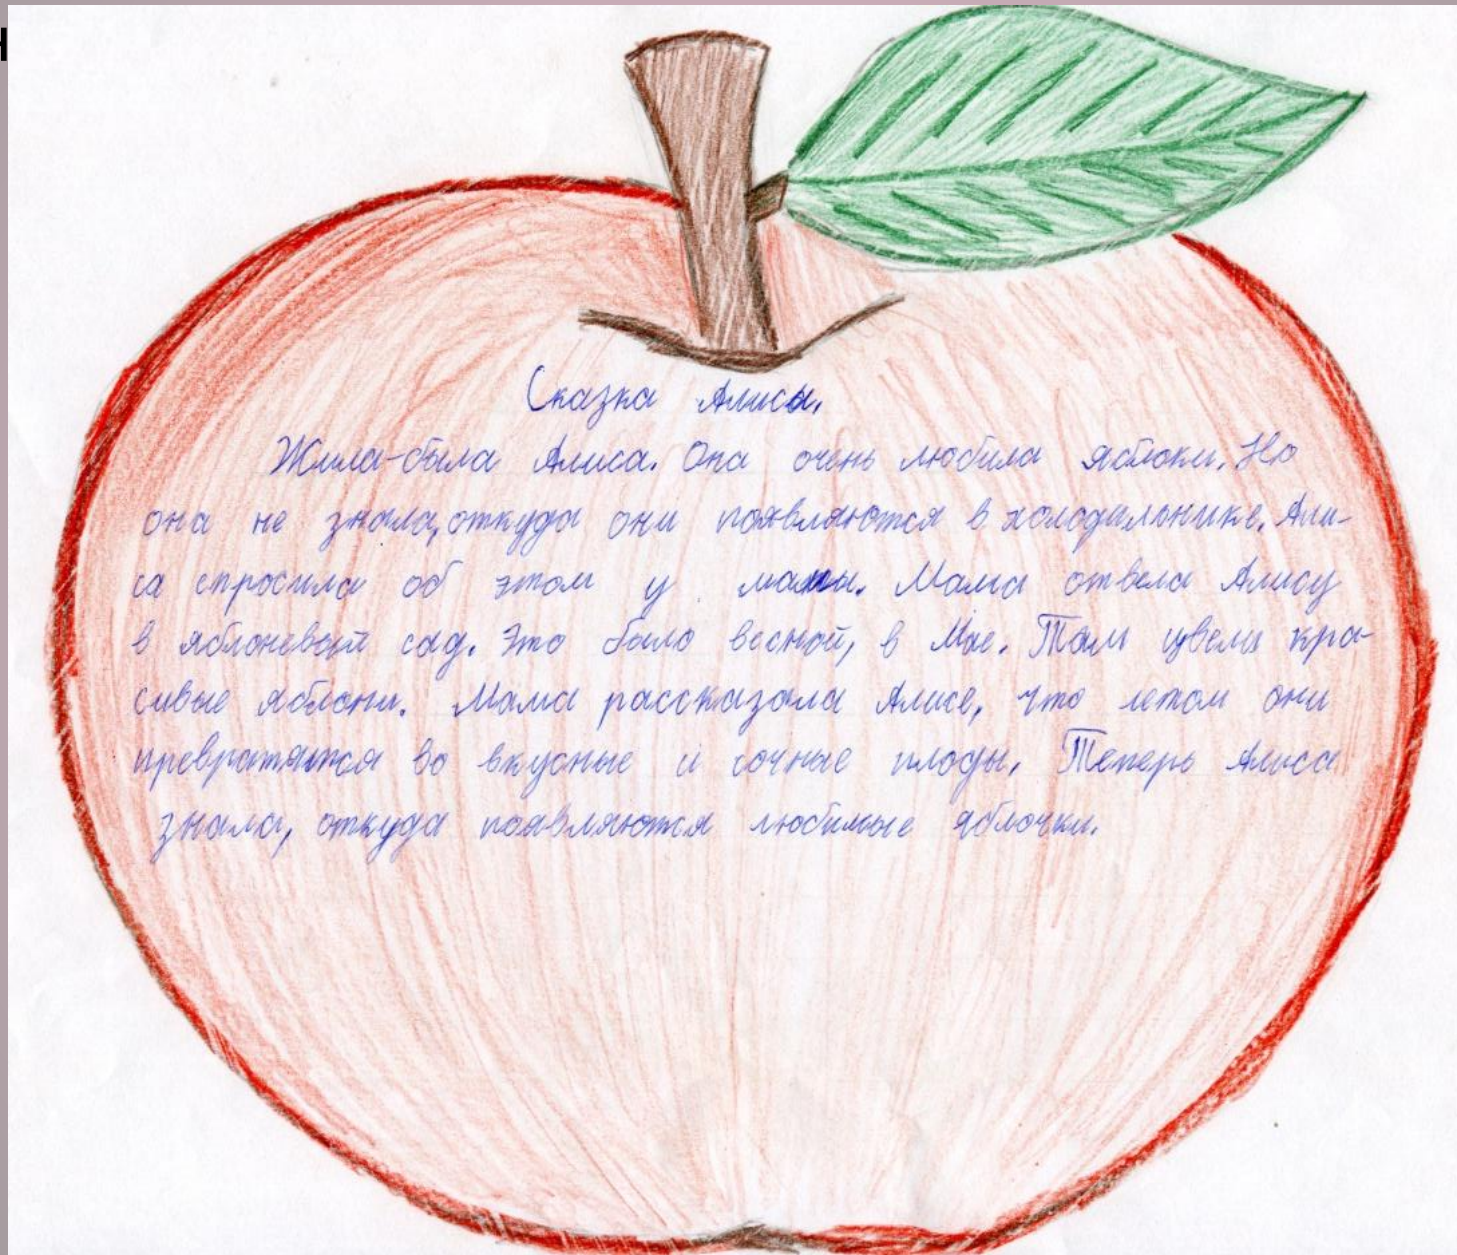 Сказка Алисы.
Жила-была Алиса. Она очень любила яблоки. Но
она не знала, откуда они появляются в холодильнике. Али-
са спросила об этом у мамы. Мама отвела Алису
в яблоневый сад. Это было весной, в Мае. Там цвели кра-
сивые яблони. Мама рассказала Алисе, что летом они
превратятся во вкусные и сочные плоды. Теперь Алиса
знала, откуда появляются любимые яблочки.